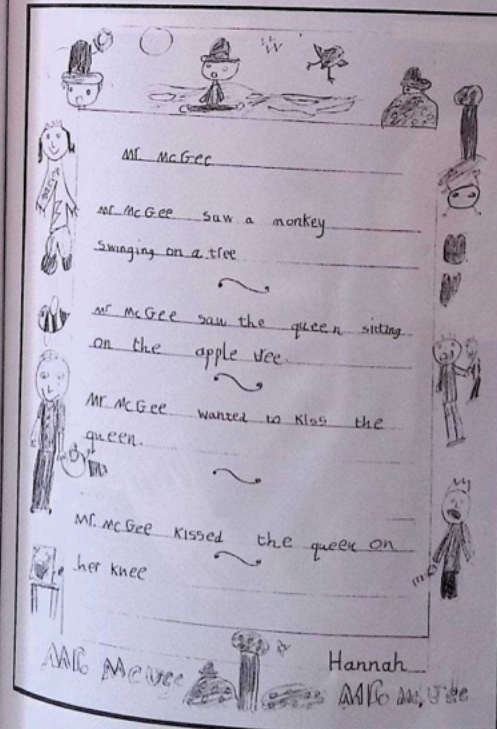 Mr. McGee
Mr. McGee saw a monkey
swinging on a tree
Mr McGee saw the queen sitting
on the apple tree.
Mr McGee wanted to kiss the
queen.
Mr. McGee kissed the queen on
her knee
Hannah
Mr McGee